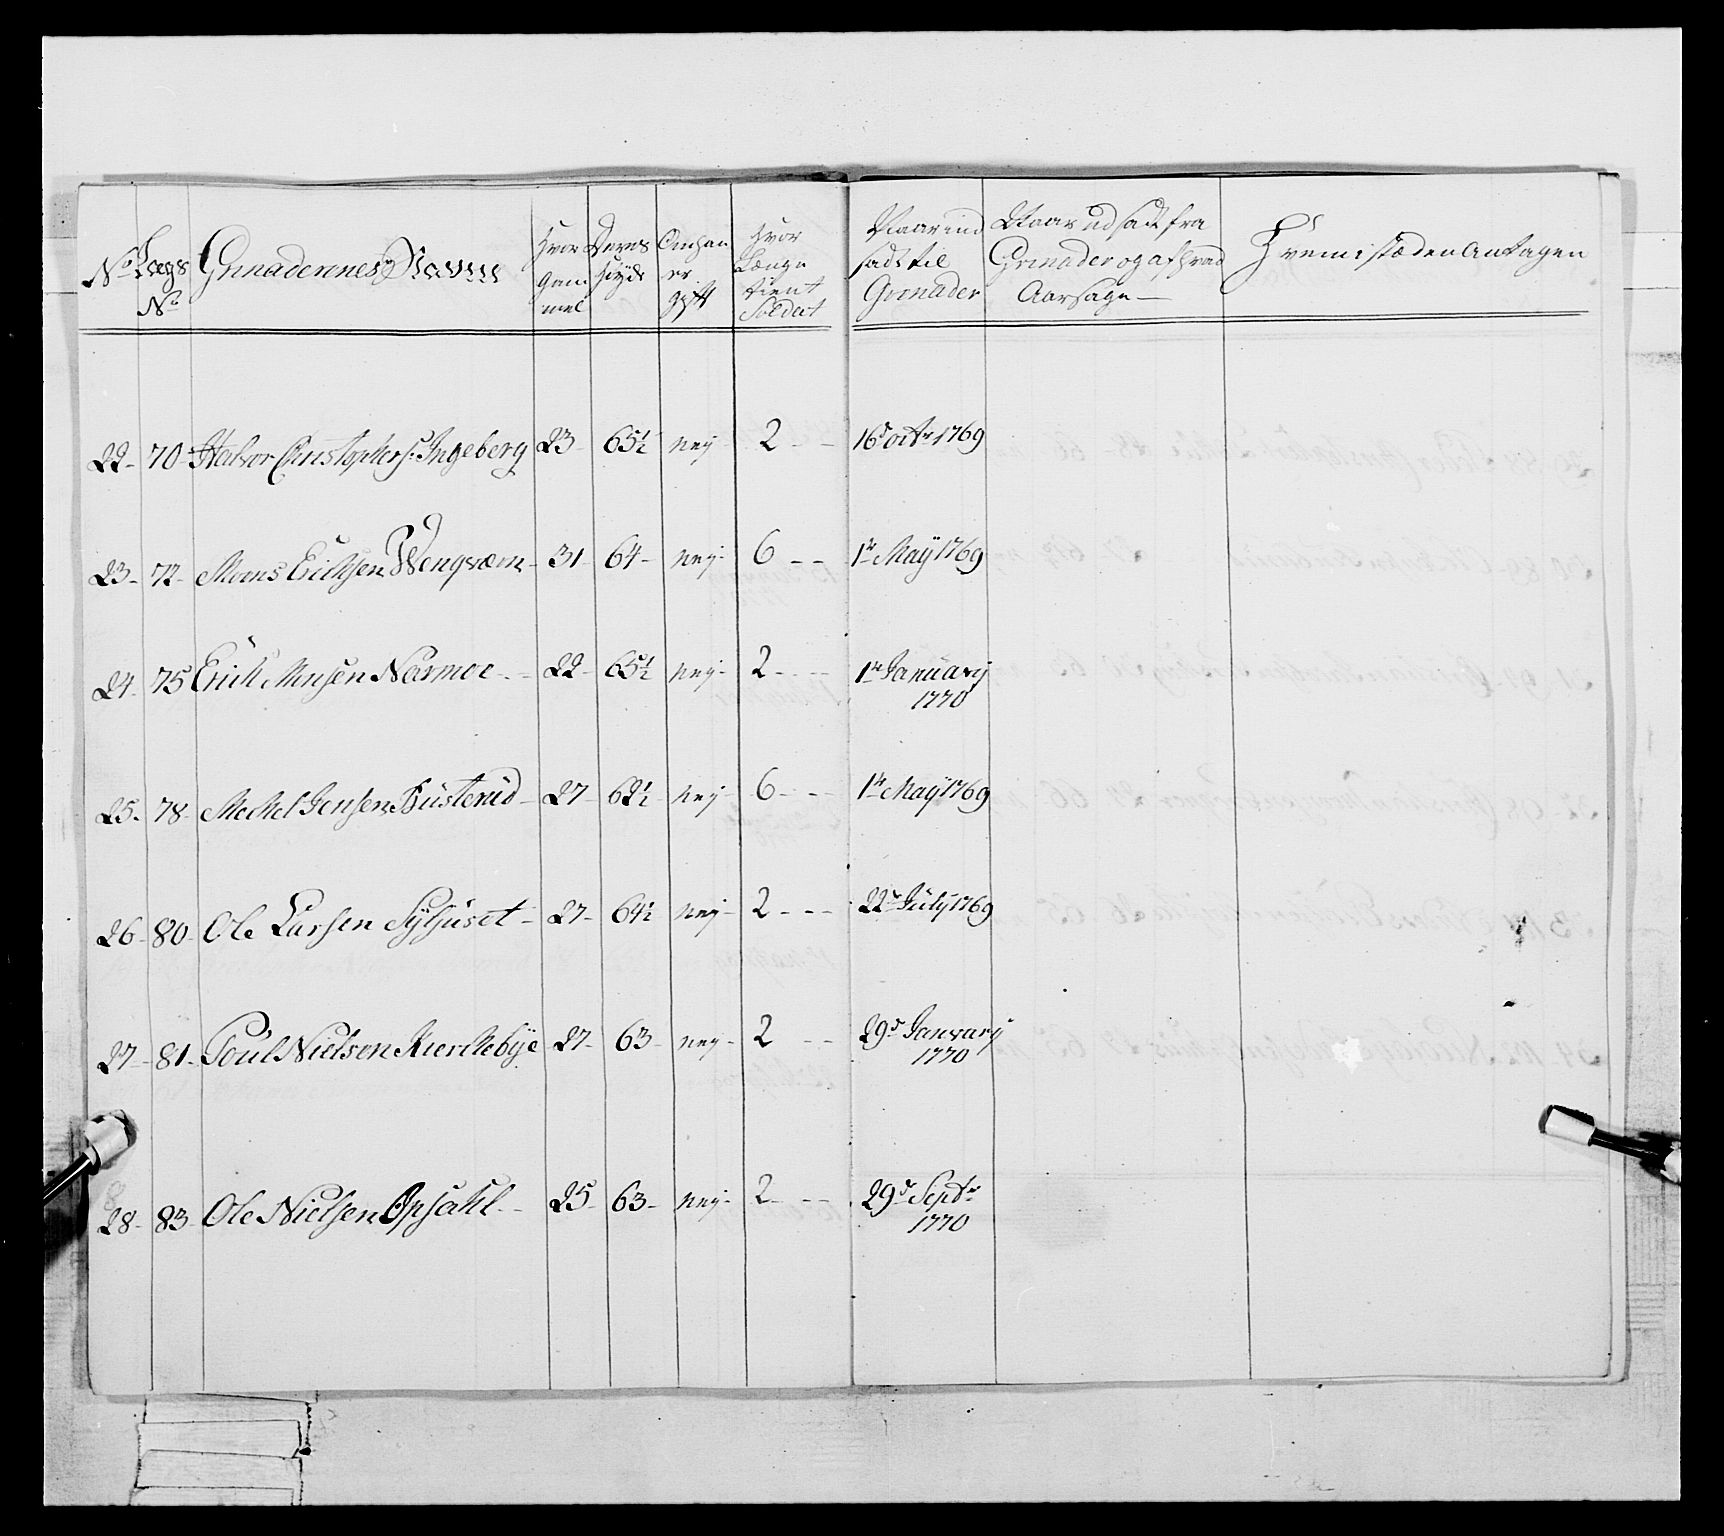 No Lægs No Grenaderernes Navne Hvor Gammel Deres Høyde Om han er gift Hvor Længe tient Soldat Naar ind sadt til Grenader Naar ud sadt fra Grenader og af hvad Aarsage Hvem i stæden Antagen
22- 70- Halvor Christophers: Ingeberg 23- 65½ ney 2 - - 16d octr 1769
23- 72- Moens Erichsen Wengværn- 31- 64- ney- 6 - - 1te Maÿ 1769
24- 75 Erich Monsen Normoe - - 22- 65½ ney- 2 - - - 1te Januarÿ 1770
25- 78- Mechel Jensen Büsterud- 27- 62½ ney- 6 - - - 1te Maÿ 1769
26- 80- Ole Larsen Sÿljuset- 27- 64½ ney- 2 - - - 22de Julÿ 1769
27- 81- Poul Nielsen Kierckebÿe 27- 63- ney- 2 - - 29d Januarÿ 1770
28- 83- Ole Nielsen Opsahl - - 25- 63- ney- 2 - - - 29d Septr 1770